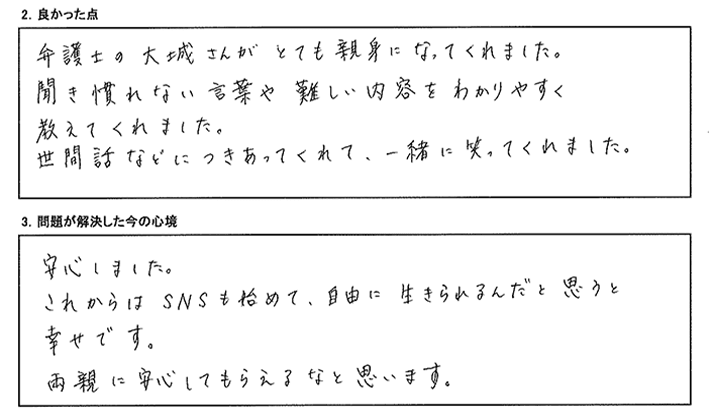 2. 良かった点
弁護士の大城さんがとても親身になってくれました。
聞き慣れない言葉や難しい内容をわかりやすく
教えてくれました。
世間話などにつきあってくれて、一緒に笑ってくれました。
3. 問題が解決した今の心境
安心しました。
これからはSNSも始めて、自由に生きられるんだと思うと
幸せです。
両親に安心してもらえるなと思います。